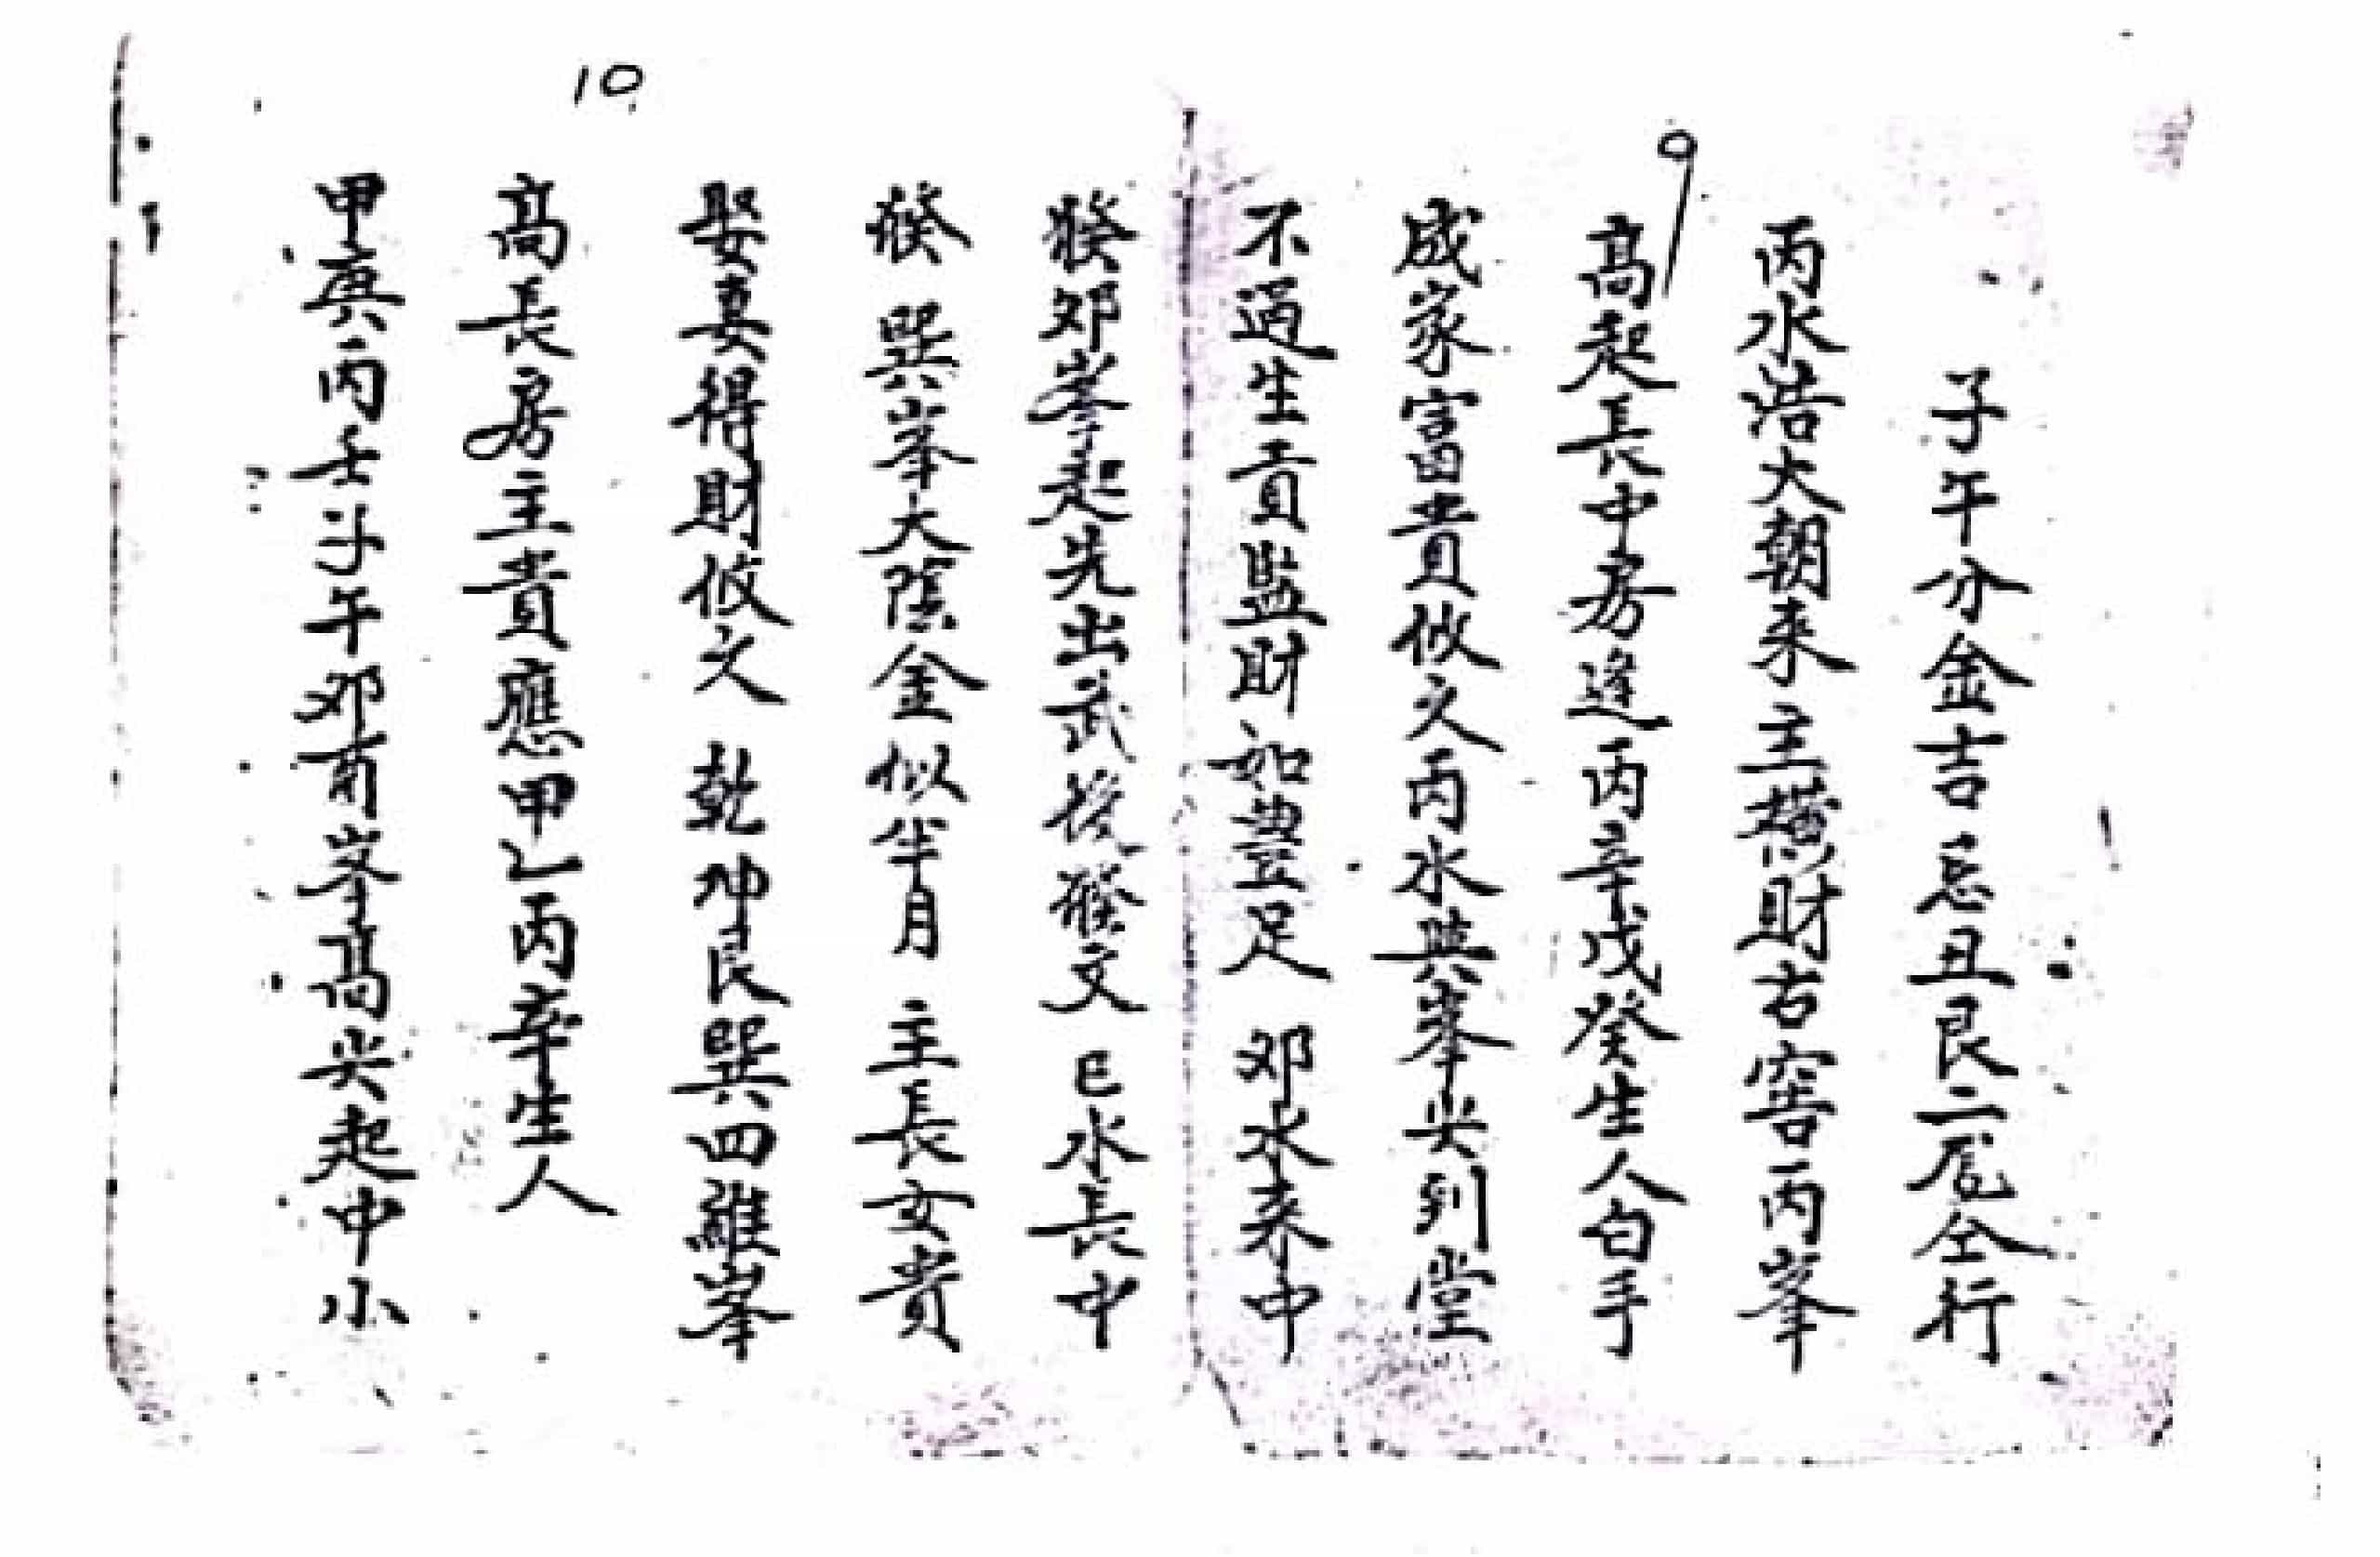 9
子午分金吉 忌丑艮二尾仝行
丙水浩大朝来主橫財古窖丙峯
高起長中房逢丙辛戊癸生人白手
成家富貴攸久丙水與峯尖到堂
不過生貢監財如豐足 邜水来中
發邜峯起先出武後發文 巳水長中
發 巽峯大陰金似半月 主長女貴
娶妻得財攸久 乾坤艮巽四維峯
高長房主貴應甲乙丙辛生人
甲庚丙壬子午邜酉峯高尖起中小
10